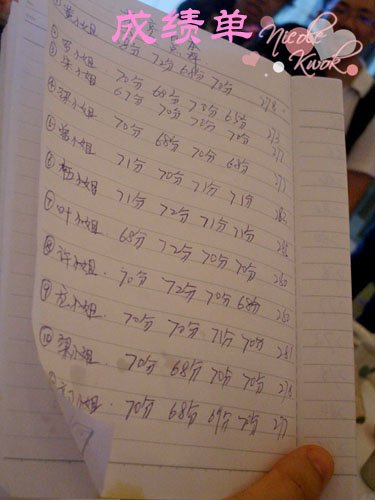 成绩单
Nicole
Kwok
① 黄小姐 68分 72分 68分 70分 278
② 罗小姐 70分 68分 70分 65分 273
③ 朱小姐 67分 70分 70分 70分
④ 梁小姐 70分 68分 70分 68分
⑤ 小姐 71分 70分 71分 71分
⑥ 小姐 71分 72分 71分 71分
⑦ 叶小姐 68分 72分 70分 70分 280
⑧ 许小姐. 70分 72分 70分 68分 280
⑨ 小姐. 70分 70分 71分 70分 281
⑩ 梁小姐. 70分 68分 70分 70分 278
小姐. 70分 68分 69分 70分 277